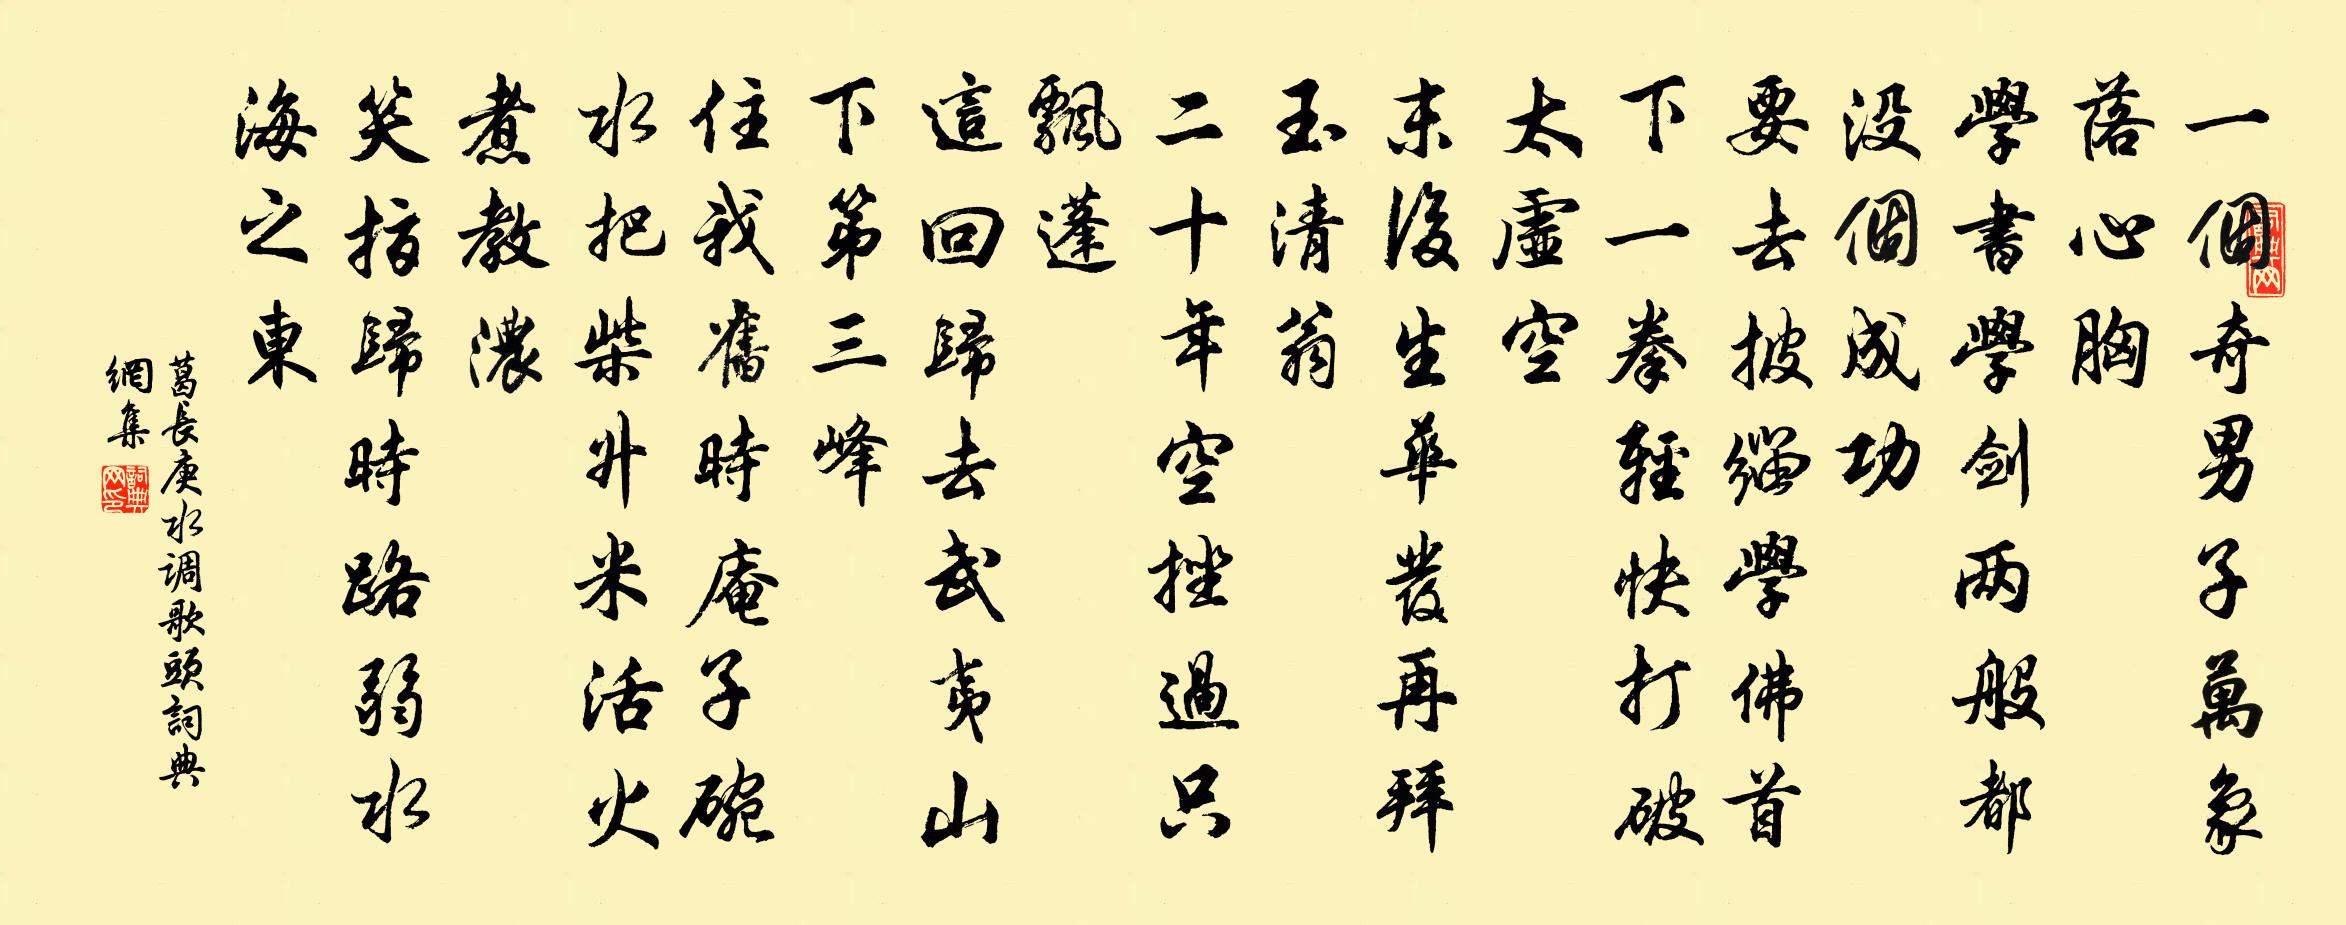 一個奇男子萬象
落心胸
學書學剑两般都
没個成功
要去披緇學佛首
下一拳輕快打破
太虛空
末後生華發再拜
玉清翁
二十年空挫過只
飄蓬
這回歸去武夷山
下第三峰
住我舊時庵子碗
水把柴升米活火
煮教濃
笑指歸時路弱水
海之東
葛長庚水调歌頭詞典
網集